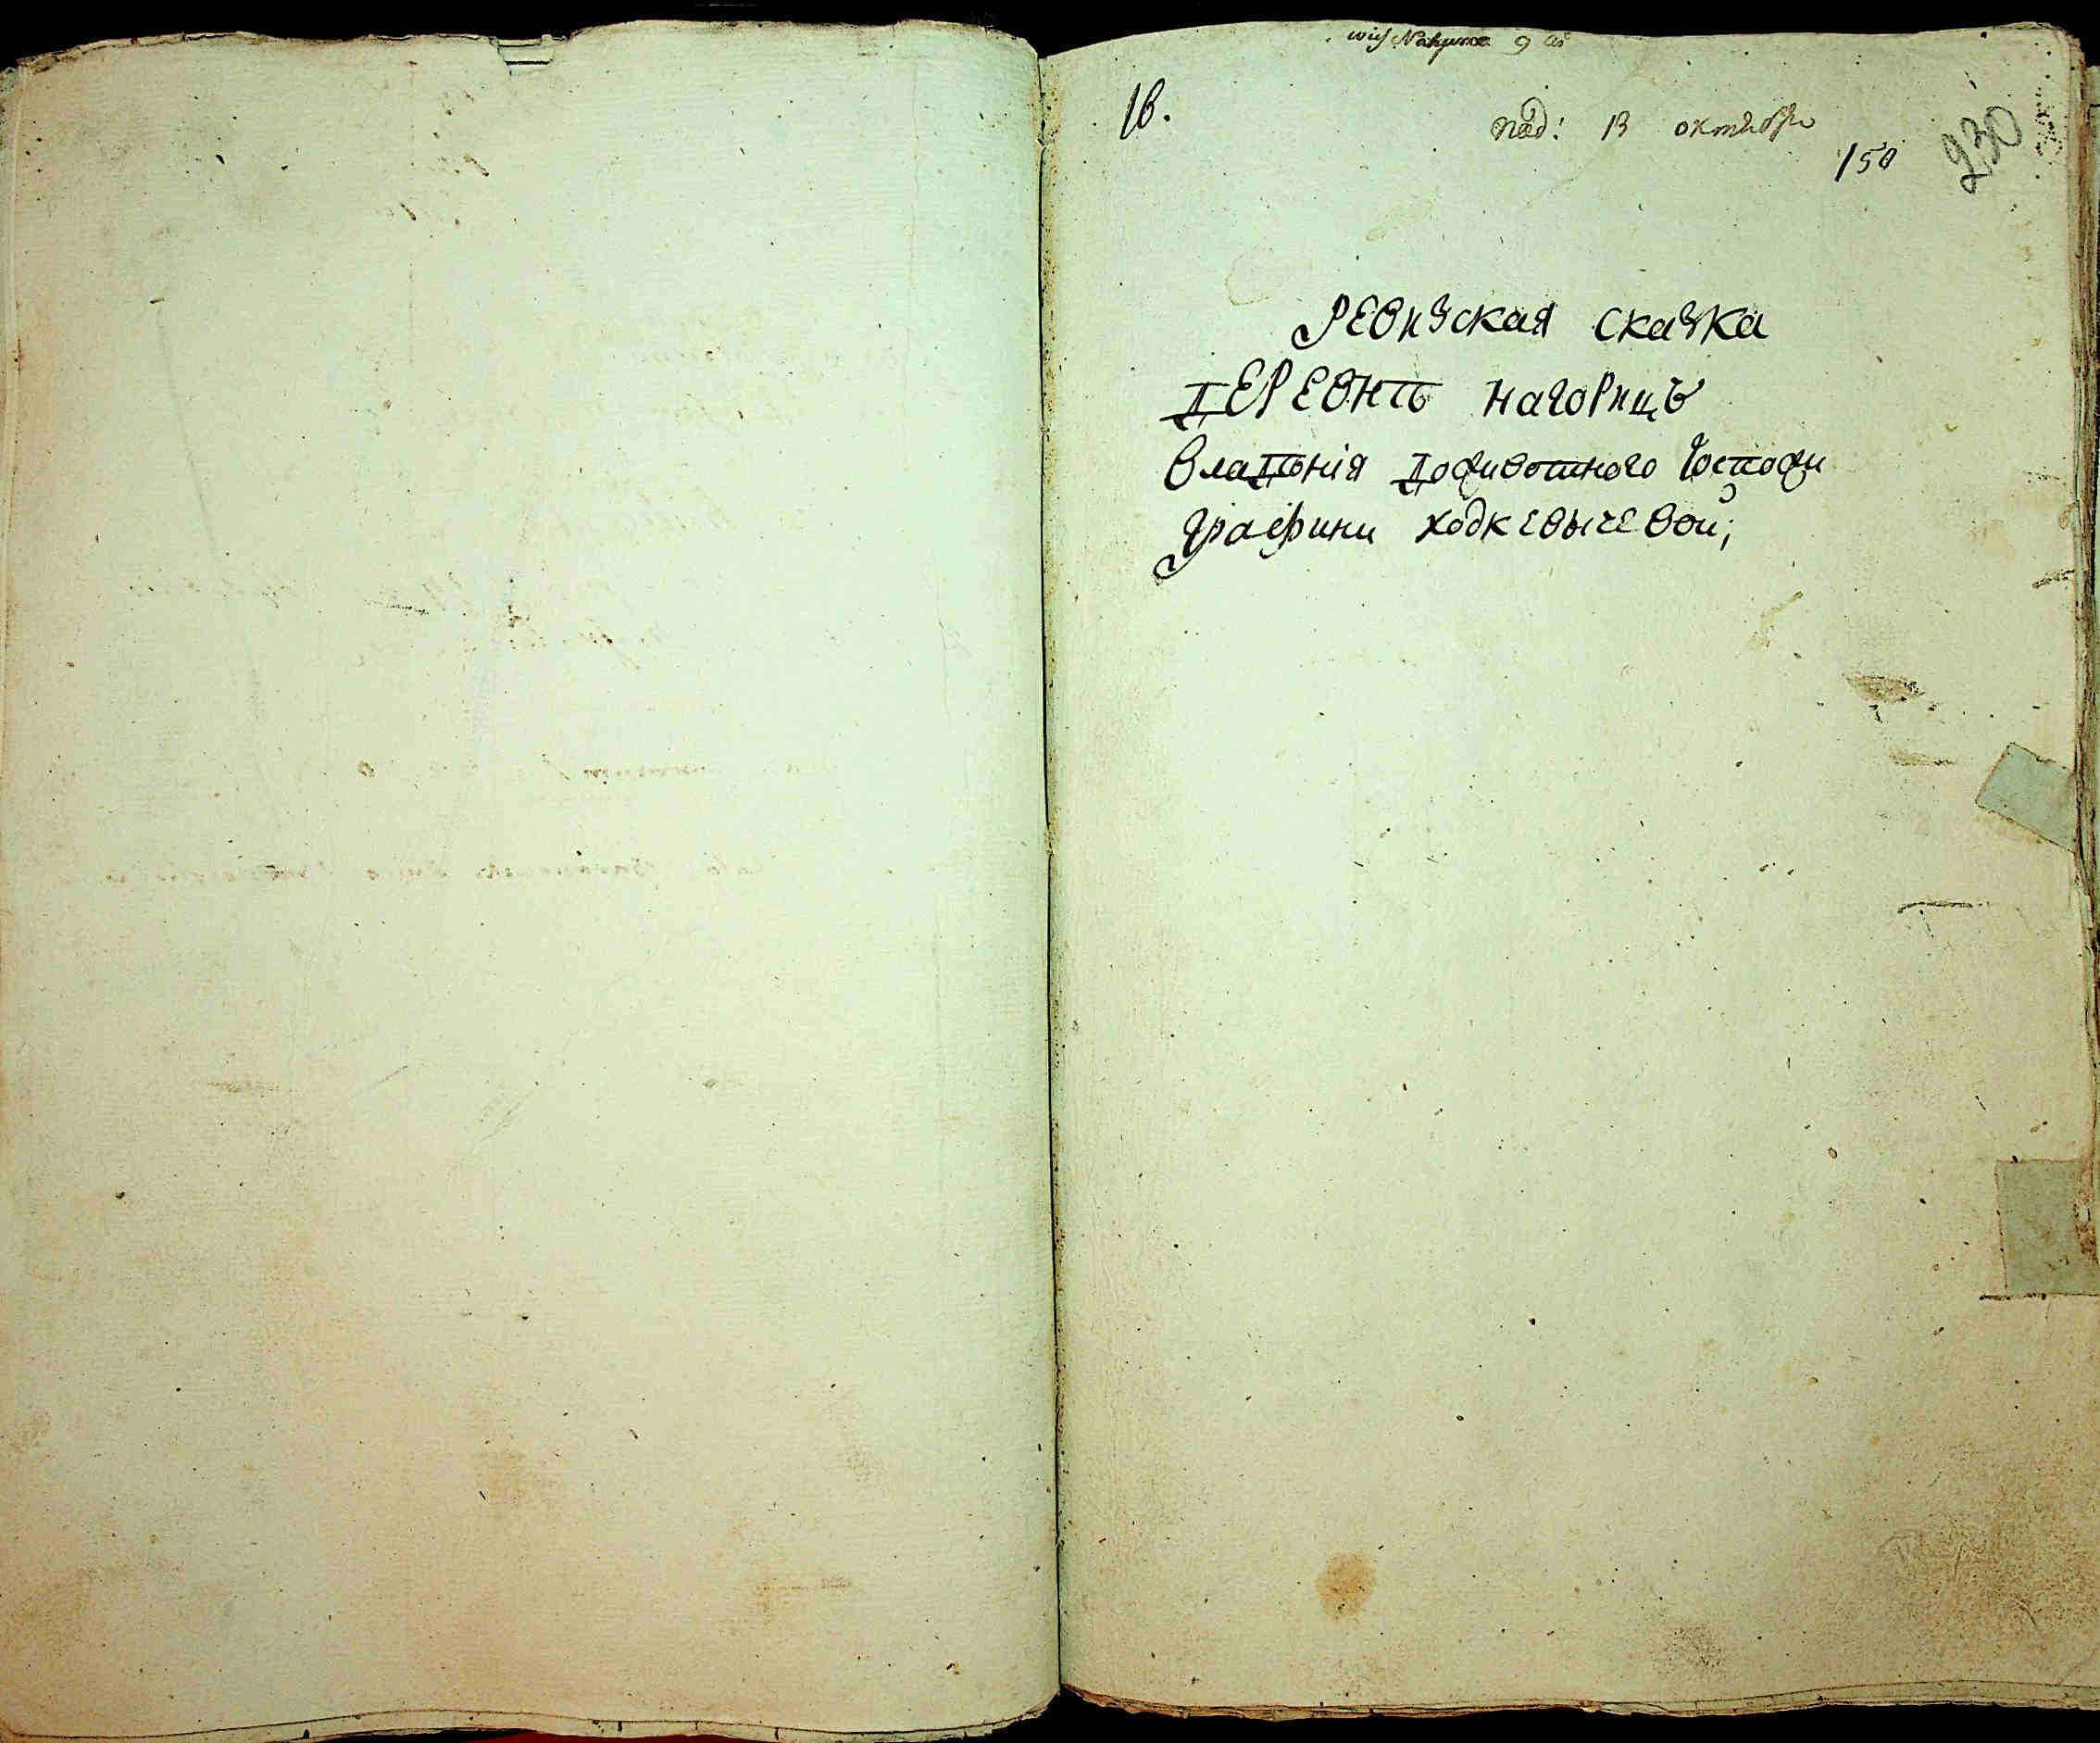 16.
под: 13 октября
150
230
Ревизская сказка
Деревнѣ Нагорицъ
Владѣнія Доживотного Господи
Графини Ходкевычевой;